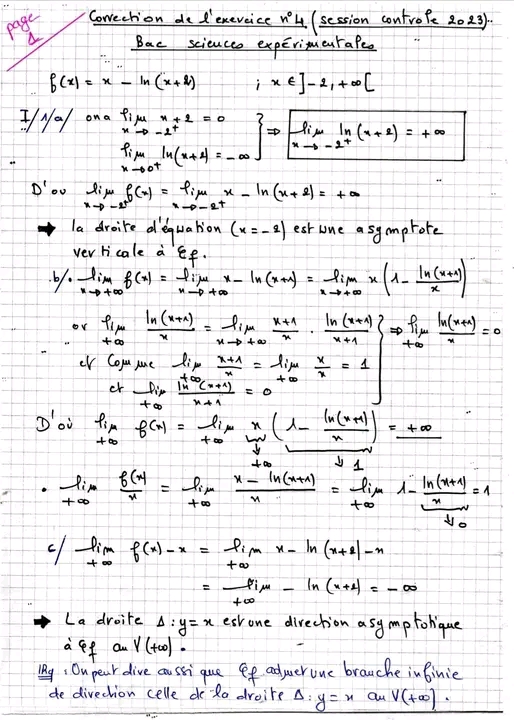 page 1
Correction de l'exercice n°4 (session controle 2023)
Bac sciences expérimentales
f(x) = x - ln(x+2) ; x ∈ ]-2, +∞[
I/1/a/ on a lim x→-2⁺ x+2 = 0
lim x→0⁺ ln(x+2) = -∞ } ⇒ lim x→-2⁺ ln(x+2) = +∞
D'où lim x→-2⁺ f(x) = lim x→-2⁺ x - ln(x+2) = +∞
➡ la droite d'équation (x=-2) est une asymptote
verticale à ℰf.
b/• lim x→+∞ f(x) = lim x→+∞ x - ln(x+1) = lim x→+∞ x(1 - ln(x+1)/x)
or lim +∞ ln(x+1)/x = lim x→+∞ (x+1)/x · ln(x+1)/(x+1) } ⇒ lim +∞ ln(x+1)/x = 0
et comme lim +∞ (x+1)/x = lim +∞ x/x = 1
et lim +∞ ln(x+1)/(x+1) = 0
D'où lim +∞ f(x) = lim +∞ x (1 - ln(x+1)/x) = +∞
↓ +∞ ↓ 1
• lim +∞ f(x)/x = lim +∞ (x - ln(x+1))/x = lim +∞ 1 - ln(x+1)/x = 1
↓ 0
c/ lim +∞ f(x) - x = lim +∞ x - ln(x+2) - x
= lim +∞ - ln(x+2) = -∞
➡ La droite Δ: y = x est une direction asymptotique
à ℰf au V(+∞).
Rq : On peut dire aussi que ℰf admet une branche infinie
de direction celle de la droite Δ: y = x au V(+∞).